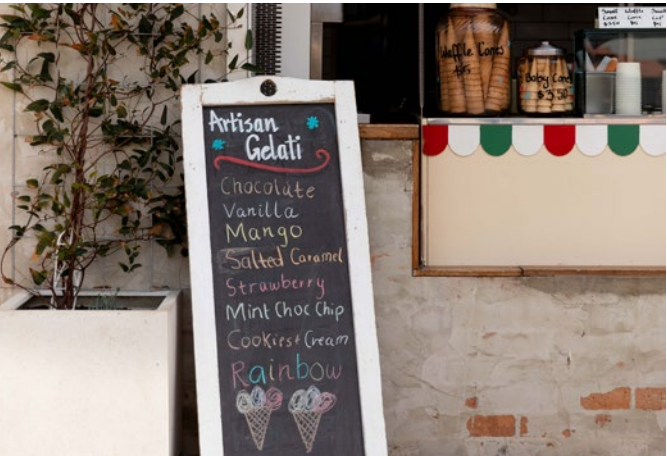 Artisan
Gelati
Chocolate
Vanilla
Mango
Salted Caramel
Strawberry
Mint Choc Chip
Cookies+Cream
Rainbow
Waffle Cones
$5
Baby Cone
$3.50
Small Waffle
Cone Cone